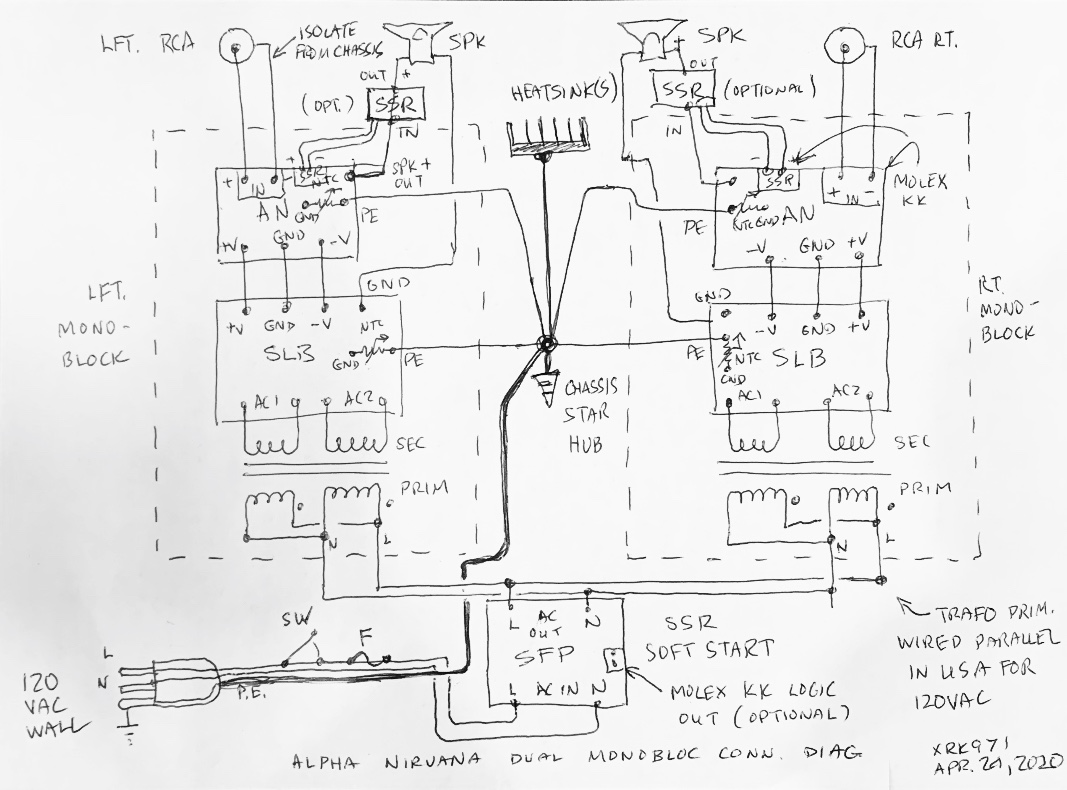 LFT. RCA
ISOLATE
FROM CHASSIS
SPK
SPK
RCA RT.
OUT +
(OPT.)
SSR
IN
HEATSINK(S)
+
OUT
SSR
(OPTIONAL)
IN
+ IN -
+ SSR -
NTC
GND
SPK +
OUT
AN
PE
+V
GND
-V
- SSR
+ IN -
MOLEX
KK
PE
NTC GND AN
-V
GND
+V
LFT.
MONO-
BLOCK
GND
+V
GND
-V
NTC
SLB
GND
PE
AC1
AC2
SEC
PRIM
N
L
CHASSIS
STAR
HUB
GND
-V
GND
+V
PE
NTC
GND
SLB
AC1
AC2
SEC
PRIM
N
L
RT.
MONO-
BLOCK
L
AC
OUT
N
SFP
L
AC IN
N
SSR
SOFT START
MOLEX KK LOGIC
OUT (OPTIONAL)
TRAFO PRIM.
WIRED PARALLEL
IN USA FOR
120VAC
SW
F
L
N
P.E.
120
VAC
WALL
ALPHA NIRVANA DUAL MONOBLOC CONN. DIAG
XRK971
APR. 29, 2020